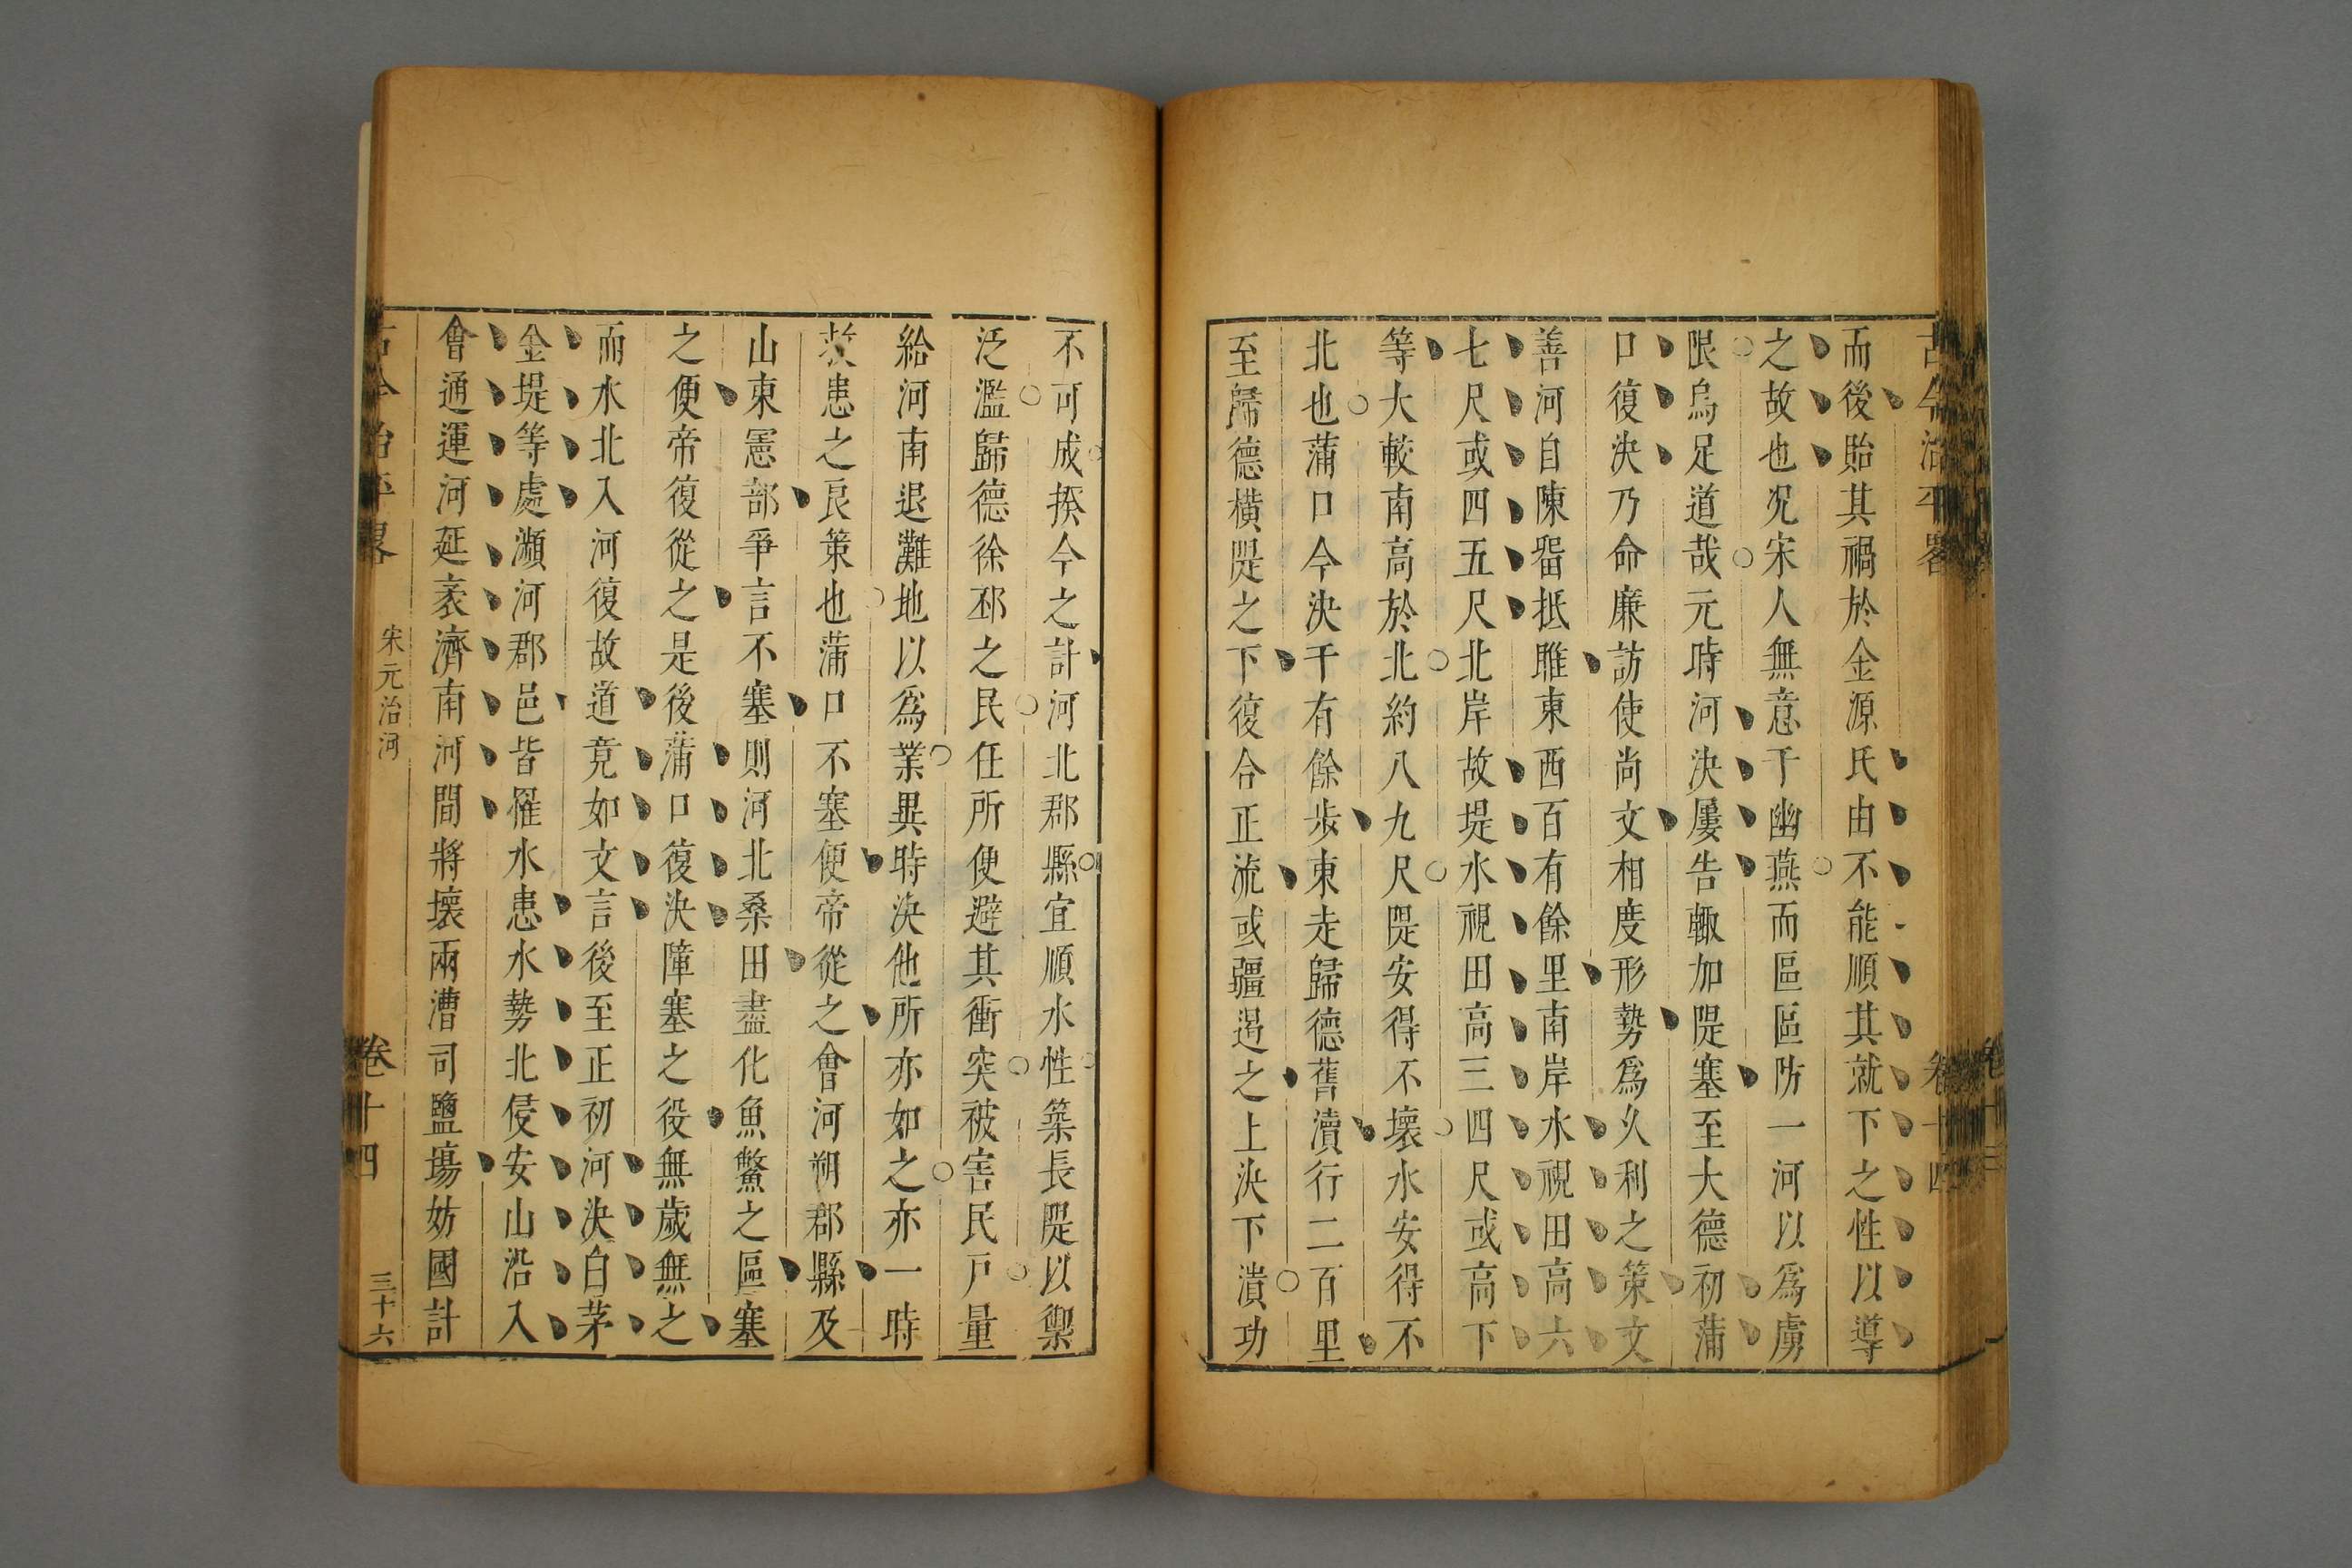 古今治平畧
卷十四
而後貽其禍於金源氏由不能順其就下之性以導
之故也况宋人無意于幽燕而區區防一河以爲虜
限烏足道哉元時河決屢告輙加隄塞至大德初蒲
口復決乃命廉訪使尚文相度形勢爲久利之策文
善河自陳畱抵睢東西百有餘里南岸水視田高六
七尺或四五尺北岸故堤水視田高三四尺或高下
等大較南高於北約八九尺隄安得不壞水安得不
北也蒲口今決千有餘步東走歸德舊瀆行二百里
至歸德橫隄之下復合正流或疆遏之上決下潰功
不可成揆今之計河北郡縣宜順水性築長隄以禦
泛濫歸德徐邳之民任所便避其衝突被害民戸量
給河南退灘地以爲業異時決他所亦如之亦一時
救患之良策也蒲口不塞便帝從之會河朔郡縣及
山東憲部爭言不塞則河北桑田盡化魚鱉之區塞
之便帝復從之是後蒲口復決障塞之役無歲無之
而水北入河復故道竟如文言後至正初河決白茅
金堤等處瀕河郡邑皆罹水患水勢北侵安山沿入
會通運河延袤濟南河間將壞兩漕司鹽場妨國計
古今治平畧
宋元治河
卷十四
三十六